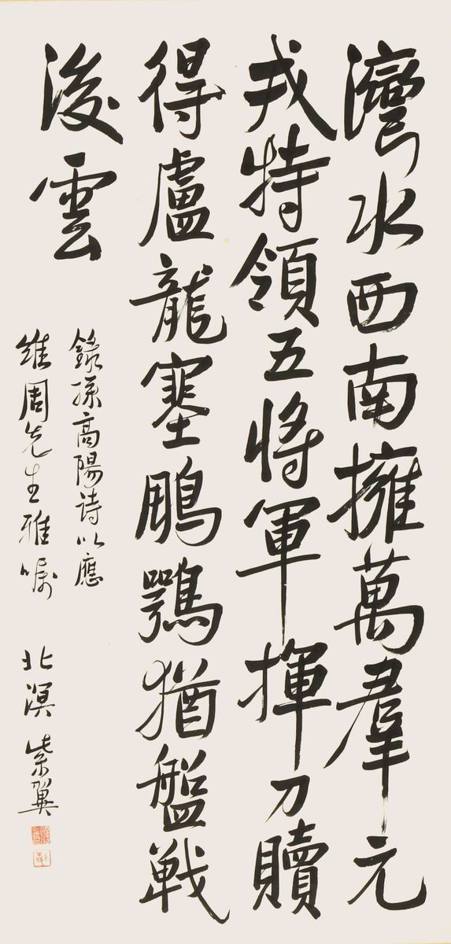 灣水西南擁萬羣元
戎特領五將軍揮刀贖
得盧龍塞鵰鶚猶盤戦
後雲
錄孫高陽詩以應
維周先生雅囑
北溟 紫翼